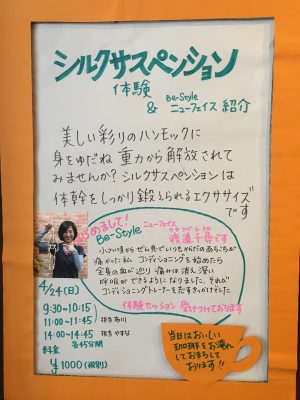 シルクサスペンション
体験
& Be-Style ニューフェイス 紹介
美しい彩りのハンモックに
身をゆだね 重力から解放されて
みませんか? シルクサスペンションは
体幹をしっかり鍛えられるエクササイズ
です
はじめまして!
Be-Style ニューフェイス
渡邉千尋です
小さい頃から ぜん息でいつもからだのあちこちが
痛かった私 コンディショニングを始めたら
全身の血が巡り 痛みは消え 深い
呼吸ができるようになりました。それが
コンディショニングトレーナーを
体験セッション 受けつけております
4/24(日)
9:30~10:15
11:00~11:45 担当
14:00~14:45 担当 やすな
各45分間
料金
¥1000(税別)
当日はおいしい
珈琲をお淹れ
しておまちして
おります!!